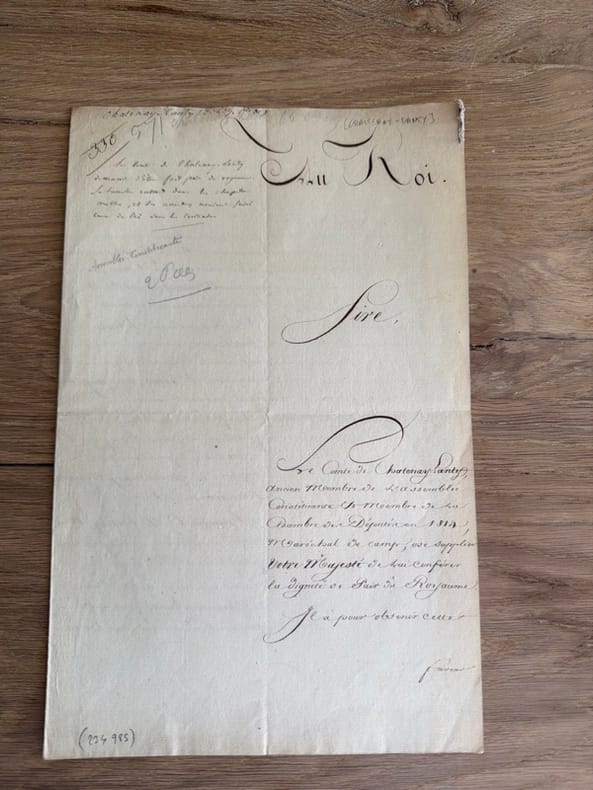 Chatenay-Lanty
[CHATENAY-LANTY]
336
Au Roi.
Le Comte de Chatenay-Lanty
demande d'être fait pair du royaume.
Assemblée Constituante
2 Pces
Sire,
Le Comte de Chatenay Lanty,
ancien Membre de L'assemblée
Constituante Et Membre de La
Chambre des Députés en 1814,
Maréchal de camp, ose supplier
Votre Majesté de Lui conférer
la dignité de Pair du Royaume.
Il à pour obtenir cette
faveur
(234 985)